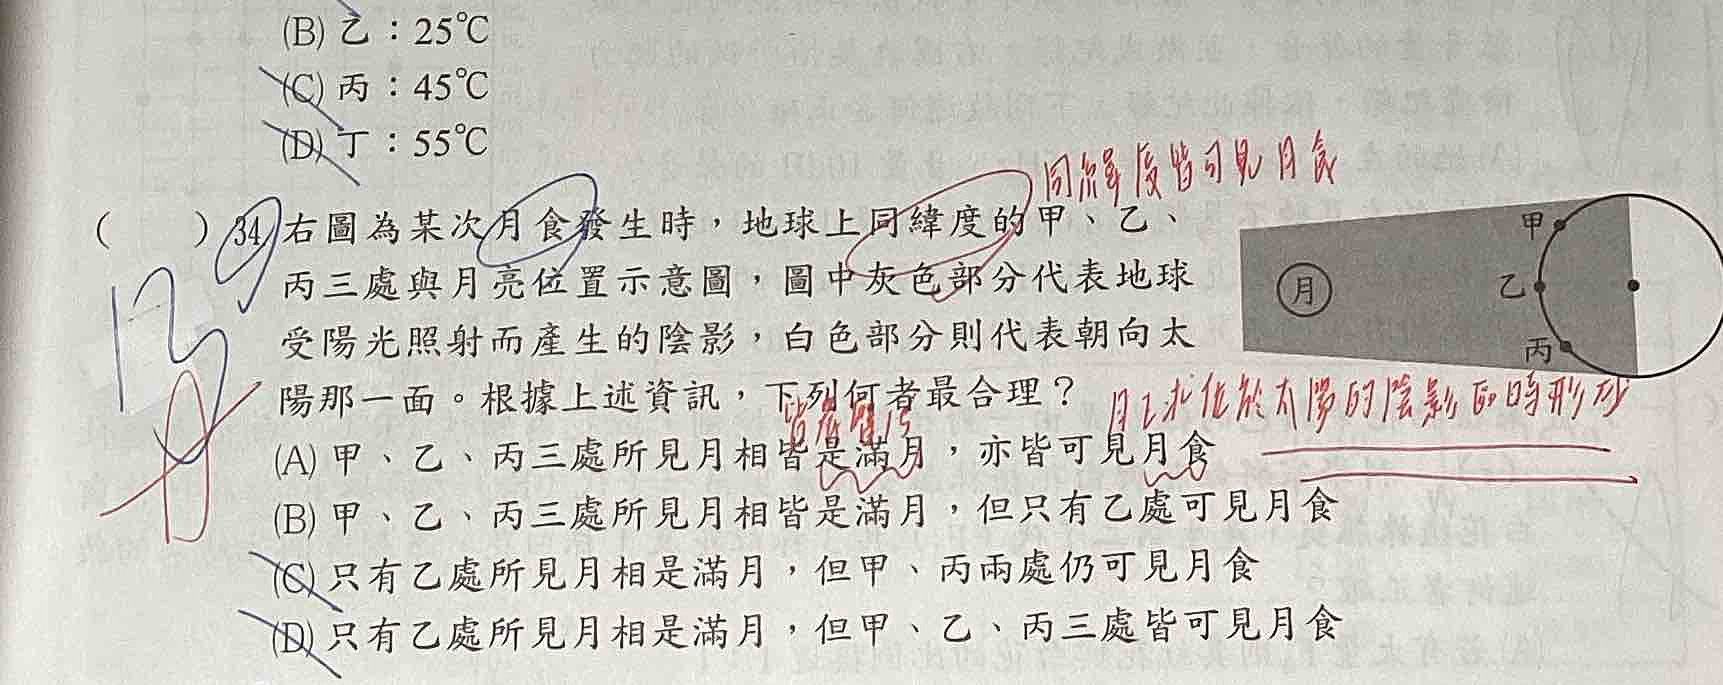 (B) 乙：25℃
(C) 丙：45℃
(D) 丁：55℃
同緯度皆可見月食
(　　) 34. 右圖為某次月食發生時，地球上同緯度的甲、乙、
丙三處與月亮位置示意圖，圖中灰色部分代表地球
受陽光照射而產生的陰影，白色部分則代表朝向太
陽那一面。根據上述資訊，下列何者最合理？
甲
乙
丙
月
位於太陽的陰影區時形成
(A) 甲、乙、丙三處所見月相皆是滿月，亦皆可見月食
(B) 甲、乙、丙三處所見月相皆是滿月，但只有乙處可見月食
(C) 只有乙處所見月相是滿月，但甲、丙兩處仍可見月食
(D) 只有乙處所見月相是滿月，但甲、乙、丙三處皆可見月食
B
A